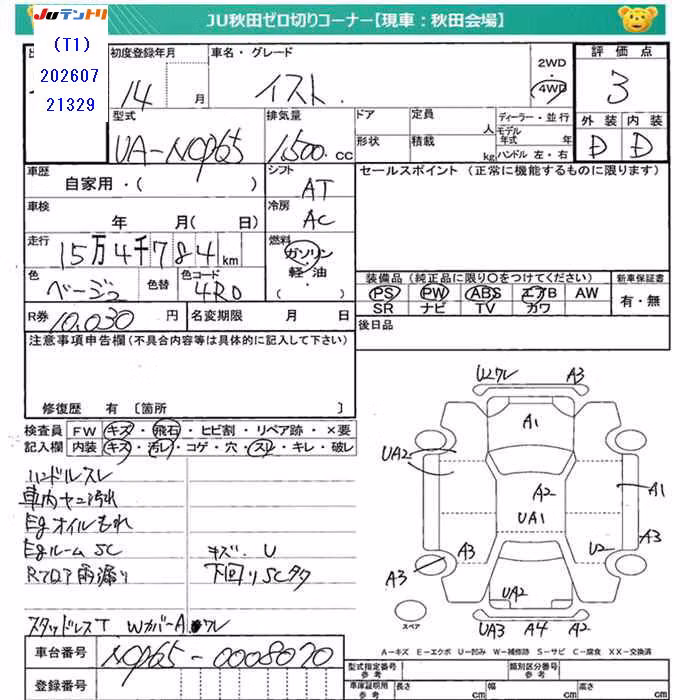 JUテントリ
JU秋田ゼロ切りコーナー【現車:秋田会場】
(T1)
202607
21329
初度登録年月
14 月
車名・グレード
イスト.
2WD
・
4WD
評価点
3
外装 内装
D D
型式
UA-NCP65
排気量
1,500.cc
ドア
定員
人
形状
積載
kg
ディーラー・並行
モデル年式 年
ハンドル 左・右
車歴
自家用・( )
シフト
AT
セールスポイント (正常に機能するものに限ります)
車検
年 月( 日)
冷房
AC
走行
15万4千784km
燃料
ガソリン
・
軽油・
( )
色
ベージュ
色替
色コード
4R0
装備品(純正品に限り○をつけてください)
PS PW ABS エアB AW
SR ナビ TV カワ
新車保証書
有・無
R券 10,030 円
名変期限 月 日
後日品
注意事項申告欄(不具合内容等は具体的に記入して下さい)
修復歴 有 〔箇所 〕
検査員 FW キズ・飛石・ヒビ割・リペア跡・×要
記入欄 内装 キズ・汚レ・コゲ・穴・スレ・キレ・破レ
ハンドルスレ
車内ヤニ汚れ
Egオイルもれ
Egルーム SC
キズ、U
Rフロア雨漏り
下回りSCタク
スタッドレスT WカバーA ワレ
U2ワレ A3
A1
UA2
A2
A1
UA1
A3
A3
U2
A3
UA2
スペア
UA3 A4 A2
A-キズ E-エクボ U-凹み W-補修跡 S-サビ C-腐食 XX-交換済
車台番号 NCP65-0008070
登録番号
型式指定番号
参考
類別区分番号
参考
車庫証明用
参考
長さ cm
幅 cm
高さ cm